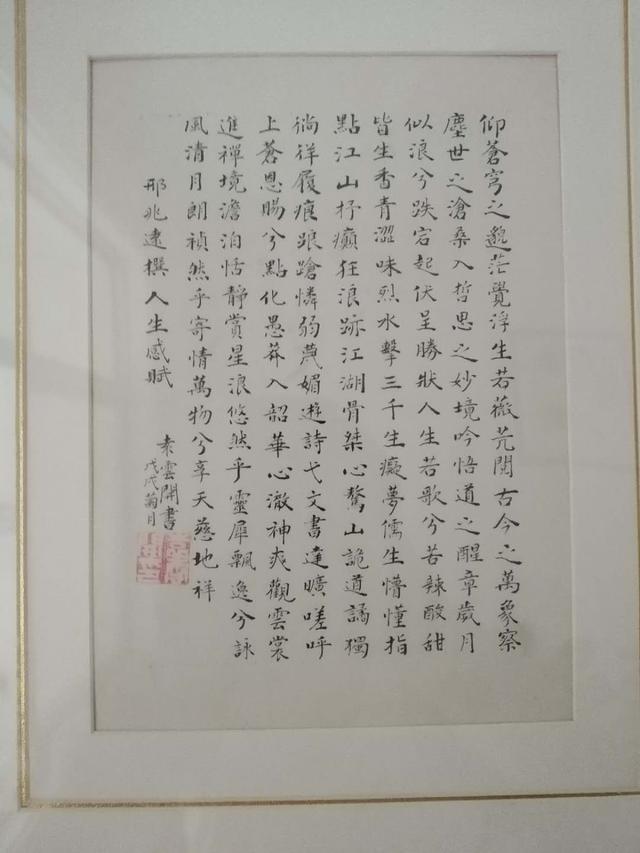 仰蒼穹之邈茫覺浮生若薇芥閱古今之萬象察
塵世之滄桑入哲思之妙境吟悟道之醒章歲月
似浪兮跌宕起伏呈勝狀人生若歌兮苦辣酸甜
皆生香青澀味烈水擊三千生癡夢儒生懵懂指
點江山抒癲狂浪跡江湖骨桀心驁山詭道譎獨
徜徉履痕踉蹌憐弱蔑媚遊詩弋文書達曠嗟呼
上蒼恩賜兮點化愚莽入韶華心澈神爽觀雲裳
進禪境澹泊恬靜賞星浪悠然乎靈犀飄逸兮詠
風清月朗禎然乎寄情萬物兮享天慈地祥
邢兆逵撰人生感賦
雲開書
戊戌菊月